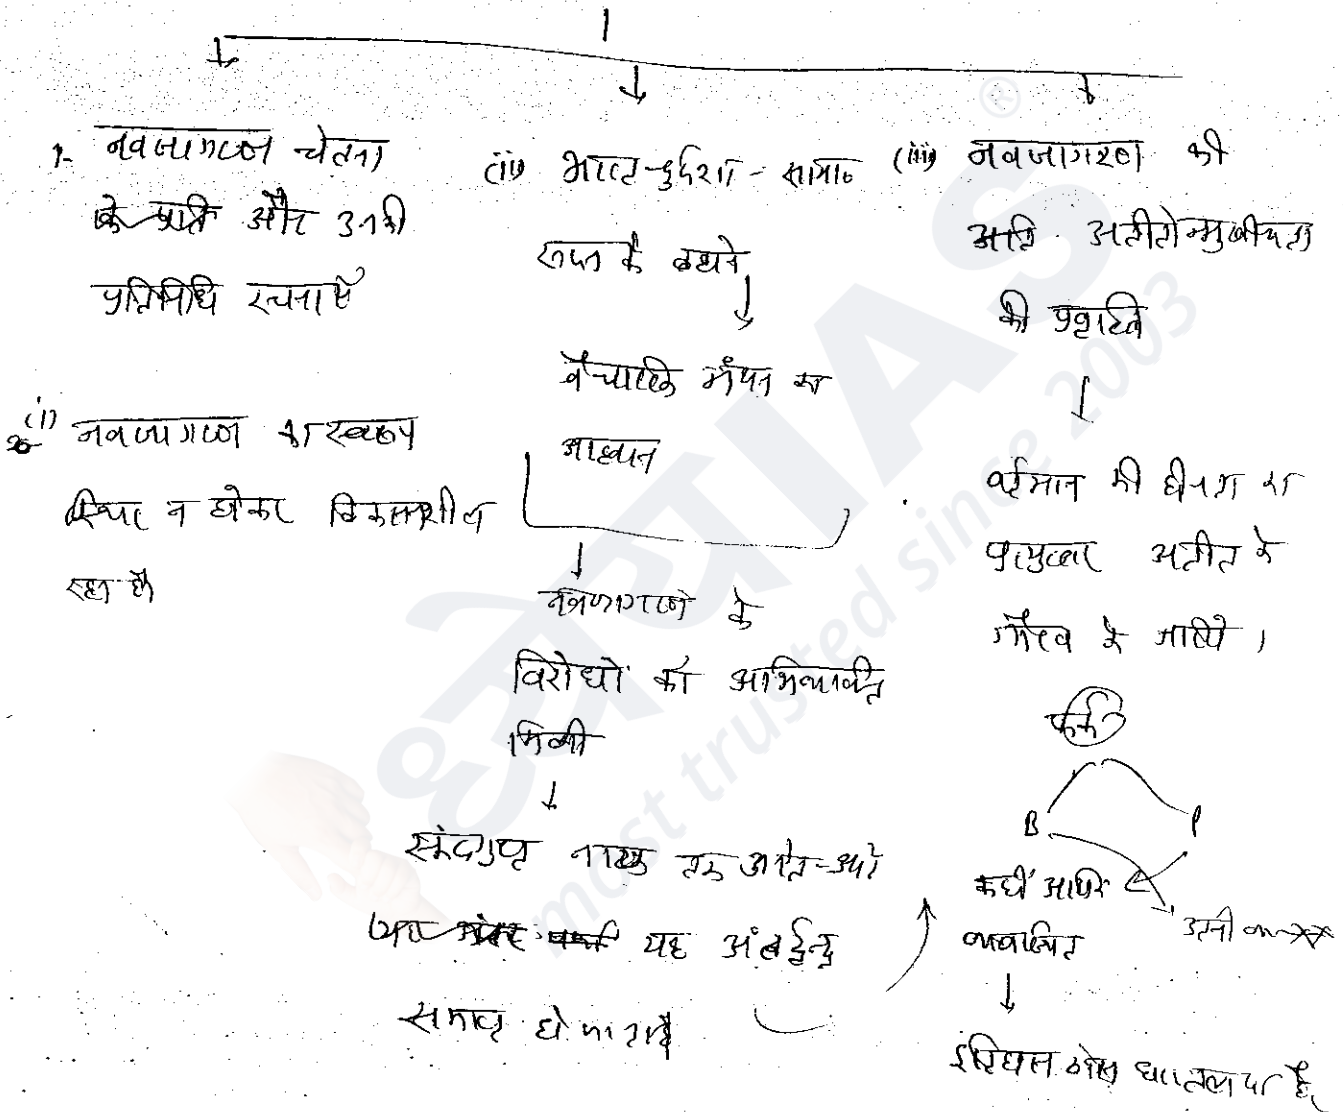 1- नवजागरण चेतना
और उनकी
प्रतिनिधि रचनाएँ
(i) नवजागरण का स्वरूप
स्थिर न होकर विकासशील
रहा है
(ii) भारत-दुर्दशा -
रूपक के बहाने
वैचारिक मंथन का
आह्वान
नवजागरण के
विरोधों को अभिव्यक्ति
मिली
स्कंदगुप्त नाटक तक आते-आते
यह अंतर्द्वन्द्व
समाप्त हो जाता है
(iii) नवजागरण की
अतीतोन्मुखीयता
की प्रवृत्ति
वर्तमान की हीनता का
प्रत्युत्तर अतीत के
गौरव के जरिये।
फर्क
B P
कहीं अधिक
इतिहास ठोस धरातल पर है
ध्येय IAS
most trusted since 2003